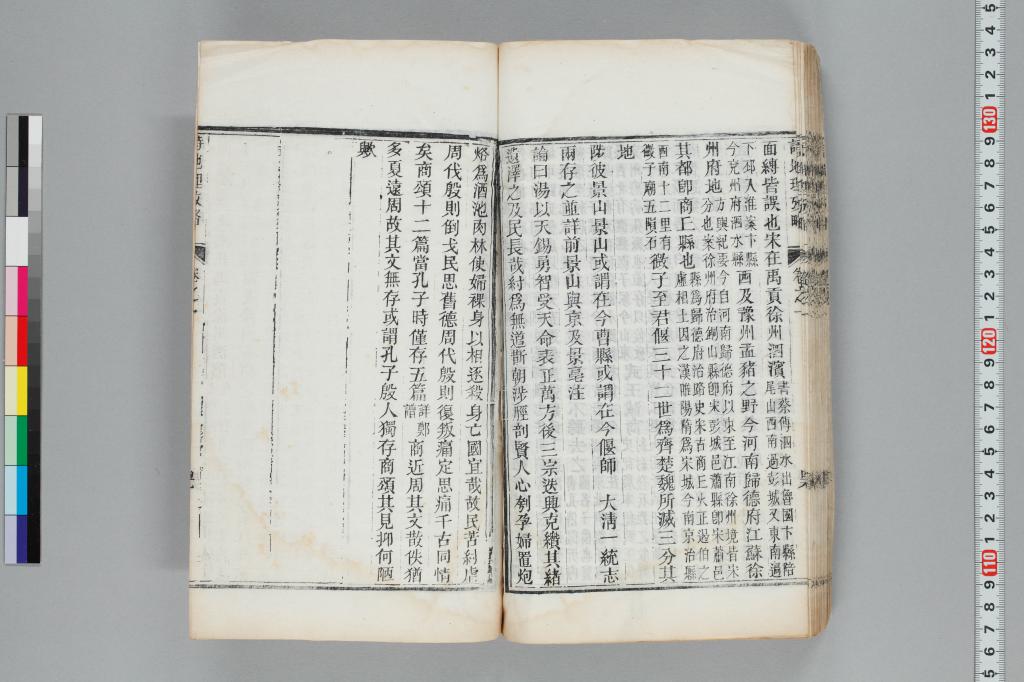 詩地理攷略
面縛皆誤也宋在禹貢徐州泗濱書蔡傳泗水出魯國卞縣陪尾山西南過彭城又東南過
下邳入淮案卞縣今兗州府泗水縣西及豫州孟豬之野今河南歸德府江蘇徐
州府地方輿紀要今自河南歸德府以東至江南徐州境皆宋分也案徐州府治銅山縣卽宋彭城邑蕭縣卽宋蕭邑
其都卽商丘縣也縣爲歸德府治路史宋古商丘火正閼伯之虛相土因之漢睢陽隋爲宋城今南京治縣
西南十二里有微子廟五隕石微子至君偃三十二世爲齊楚魏所滅三分其
地
陟彼景山景山或謂在今曹縣或謂在今偃師 大淸一統志
兩存之並詳前景山與京及景亳注
論曰湯以天錫勇智受天命表正萬方後三宗迭興克纘其緒
遺澤之及民長哉紂爲無道斮朝涉脛剖賢人心刳孕婦置炮
烙爲酒池肉林使婦裸身以相逐殺身亡國宜哉故民苦紂虐
周代殷則倒戈民思舊德周代殷則復叛痛定思痛千古同情
矣商頌十二篇當孔子時僅存五篇詳鄭譜商近周其文散佚猶
多夏遠周故其文無存或謂孔子殷人獨存商頌其見抑何陋
歟
詩地理攷略